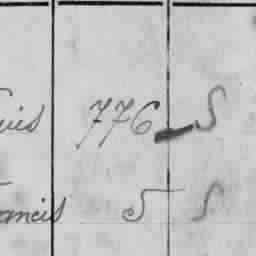 uis 776 S
ancis 5 S